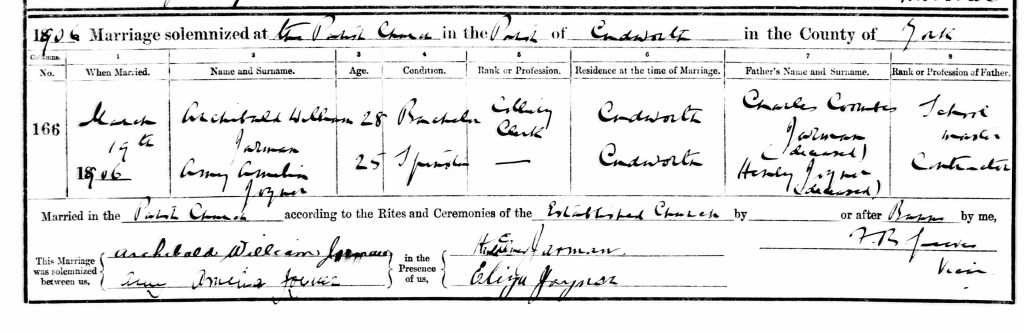 1906 Marriage solemnized at the Parish Church in the Parish of Cudworth in the County of York
Columns. 1 2 3 4 5 6 7 8
No. When Married. Name and Surname. Age. Condition. Rank or Profession. Residence at the time of Marriage. Father's Name and Surname. Rank or Profession of Father.
166 March 19th 1906
Archibald William Jarman 28 Bachelor Colliery Clerk Cudworth Charles Coombes Jarman (deceased) School master
Amy Amelia Joyner 25 Spinster — Cudworth Henry Joyner (deceased) Contractor
Married in the Parish Church according to the Rites and Ceremonies of the Established Church by or after Banns by me,
This Marriage was solemnized between us, Archibald William Jarman in the Presence of us, Jarman.
Amelia Joyner Eliza Joyner
Vicar